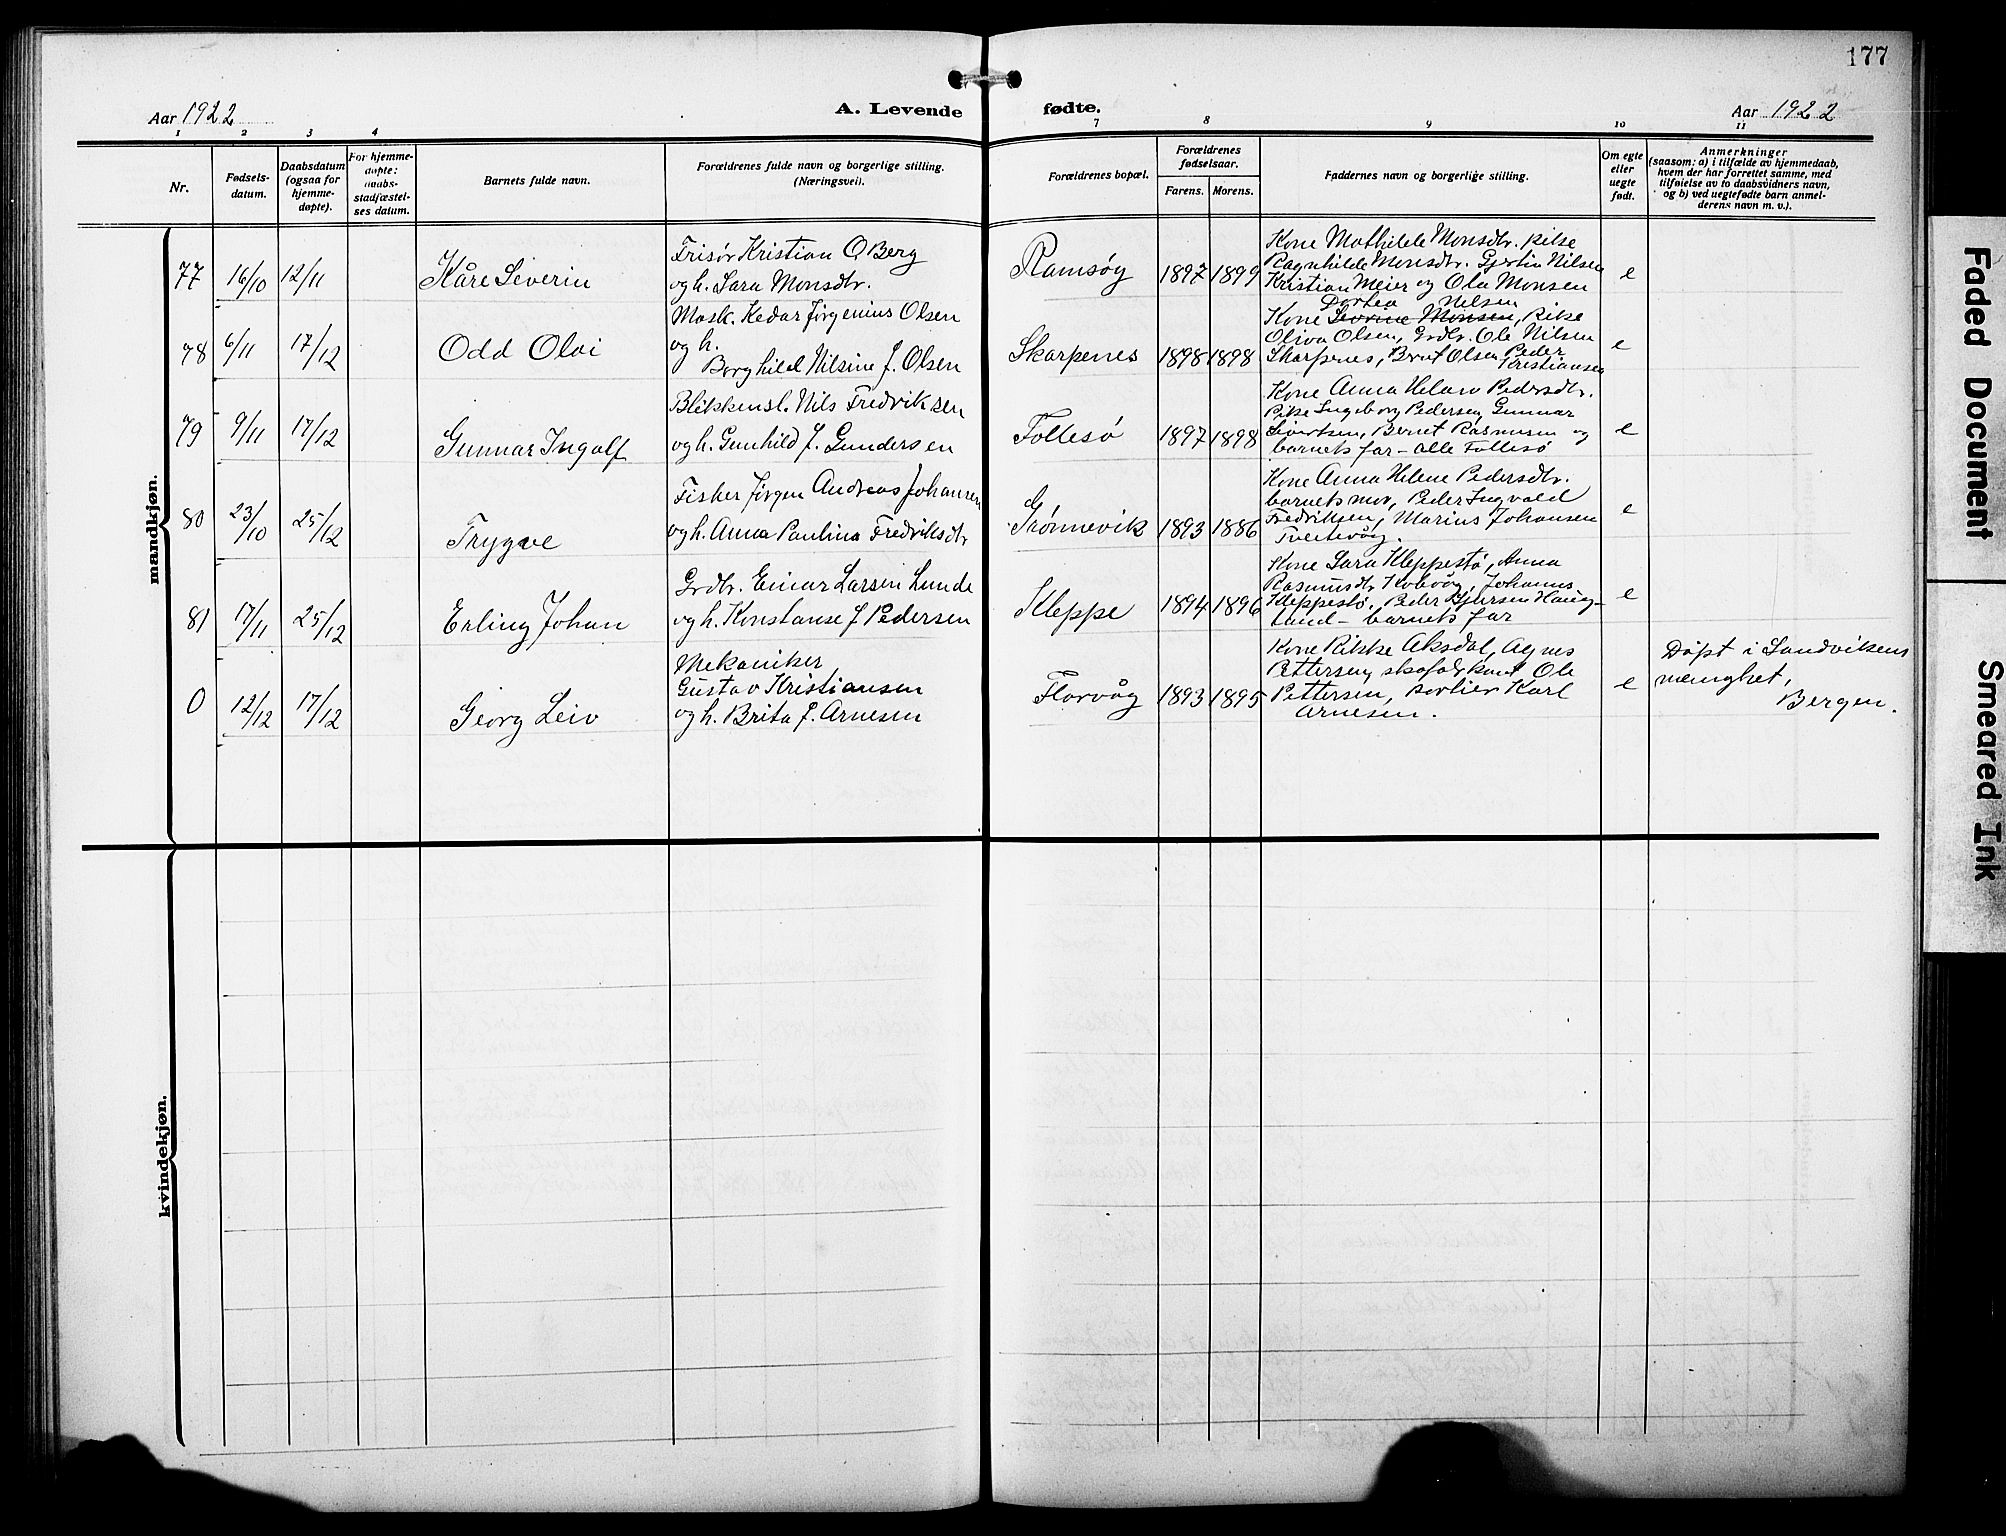 177
Aar 1922
A. Levende fødte.
Aar 1922
1 2 3 4 7 8 9 10 11
Nr.
Fødsels-
datum.
Daabsdatum
(ogsaa for
hjemme-
døpte).
For hjemme-
døpte:
daabs-
stadfæstel-
ses datum.
Barnets fulde navn.
Forældrenes fulde navn og borgerlige stilling.
(Næringsvei).
Forældrenes bopæl.
Forældrenes
fødselsaar.
Farens. Morens.
Faddernes navn og borgerlige stilling.
Om egte
eller
uegte
født.
Anmerkninger
(saasom: a) i tilfælde av hjemmedaab,
hvem der har forrettet samme, med
tilføielse av to daabsvidners navn,
og b) ved uegtefødte barn anmel-
derens navn m. v.).
mandkjøn.
77 16/10 12/11 Kåre Severin
Frisør Kristian O Berg
og h. Sara Monsdtr.
Ramsøy 1897 1899
Kone Mathilde Monsdtr. pike
Ragnhilde Monsdtr. Gjertin Nilsen
Kristian Meier og Ola Monsen
e
78 6/11 17/12 Odd Olai
Mask. Kedar Jørgenius Olsen
og h.
Borghild Nilsine f. Olsen
Skarpenes 1898 1898
Dortea Nilsen
Kone Severine Monsen, Pike
Oliva Olsen, Grdbr. Ole Nilsen
Skarpenes, Bernt Olsen Peder
Kristiansen
e
79 9/11 17/12 Gunnar Ingolf
Blikkensl. Nils Fredriksen
og h. Gunhild f. Gundersen
Follesø 1897 1898
Kone Anna Helene Pedersdtr.
Pike Ingeborg Pedersen, Gunnar
Sivertsen, Bernt Rasmusen og
barnets far - alle Follesø
e
80 23/10 25/12 Trygve
Fisker Jørgen Andreas Johansen
og h. Anna Paulina Fredriksdtr
Grønnevik 1893 1886
Kone Anna Helene Pedersdtr.
barnets mor, Peder Ingvald
Fredriksen, Marius Johansen
Tveitevåg.
e
81 17/11 25/12 Erling Johan
Grdbr. Einar Larsen Lunde
og h. Konstanse f Pedersen
Kleppe 1894 1896
Kone Sara Kleppestø, Anna
Rasmusdtr Kobvåg, Johannes
Kleppestø, Peder Gjertsen Haug-
land - barnets far
e
0 12/12 17/12 Georg Leiv
Mekaniker
Gustav Kristiansen
og h. Brita f. Arnesen
Florvåg 1893 1895
Kone Rikke Aksdal, Agnes
Pettersen, skofabrkant Ole
Pettersen, portier Karl
Arnesen.
e
Døpt i Sandvikens
menighet,
Bergen.
kvindekjøn.
Faded Document
Smeared Ink